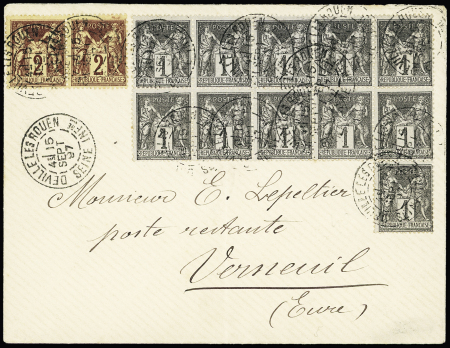 2 2 1 1 1 1 1
REPUBLIQUE FRANÇAISE
POSTE
1 1 1 1 1
1
DEVILLE LES ROUEN
SEINE INFRE
15
SEPT
97
Monsieur E. Lepeltier
poste restante
Verneuil
(Eure)